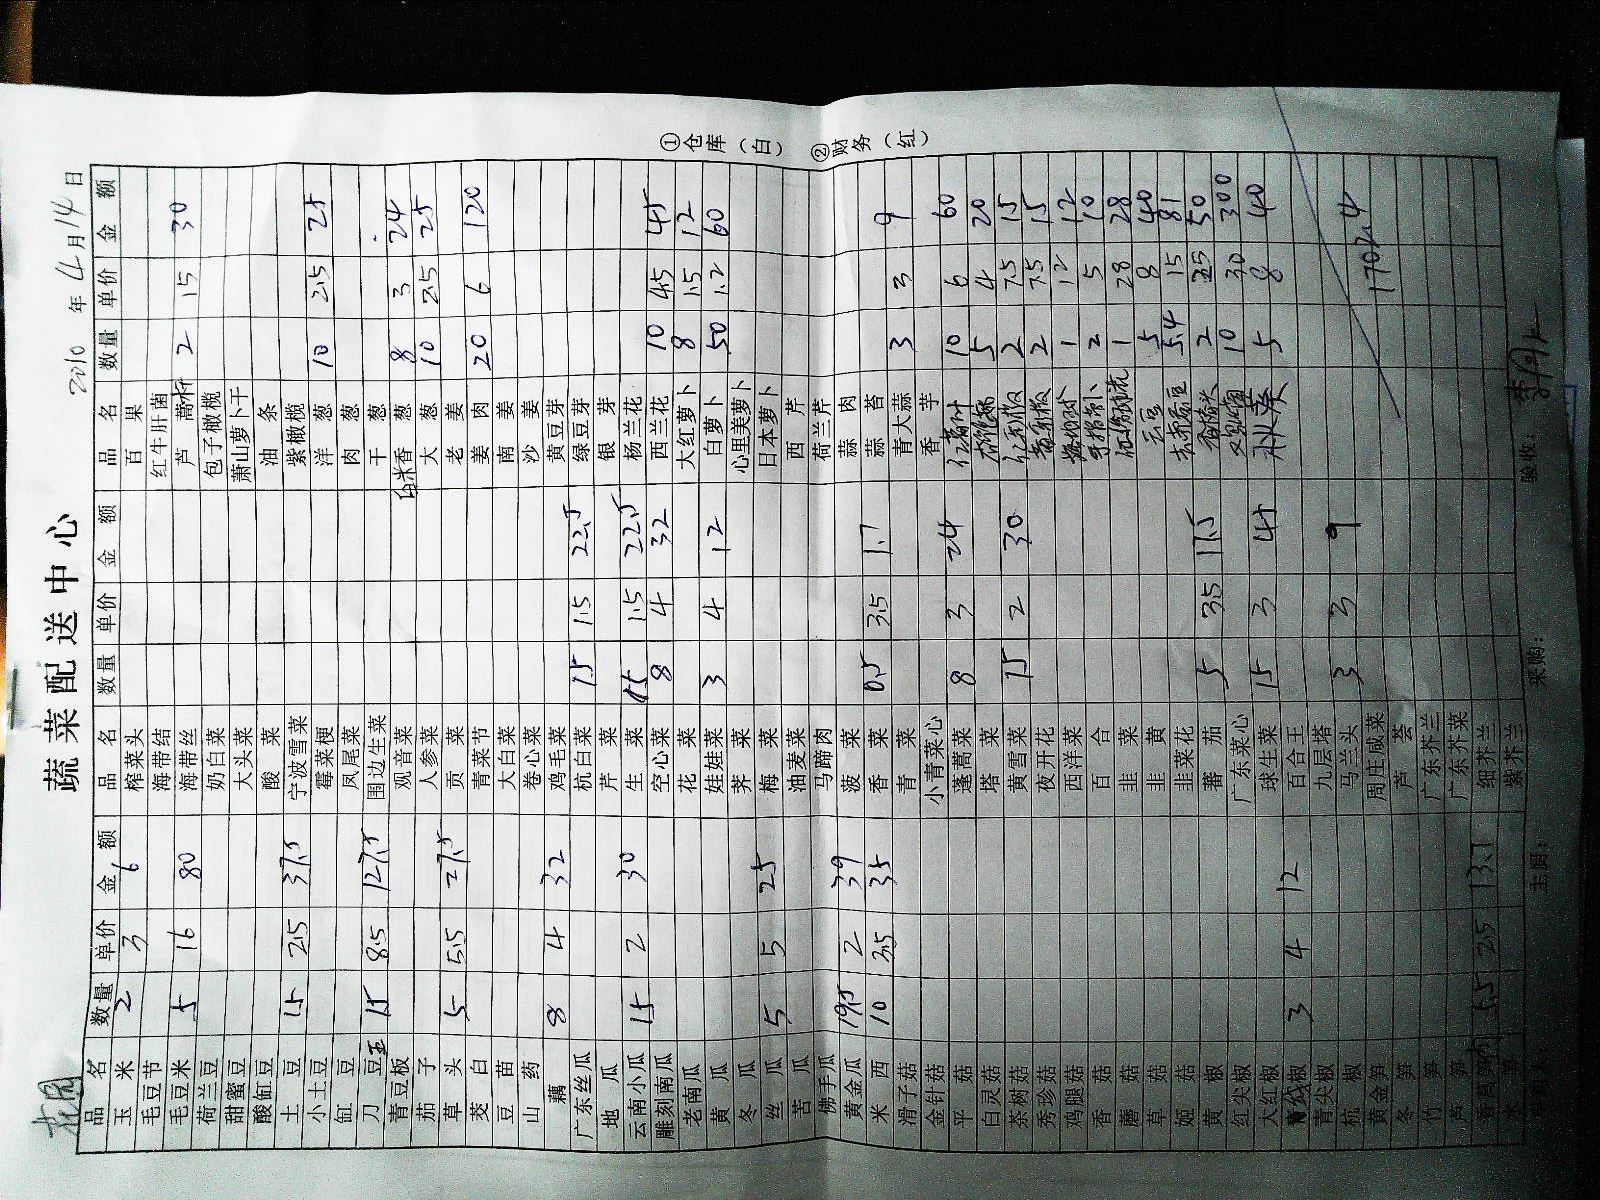 花园
蔬菜配送中心
2010年4月14日
品名 数量 单价 金额 品名 数量 单价 金额 品名 数量 单价 金额
玉米 2 3 6 榨菜头 百果
毛豆节 海带结 红牛肝菌
毛豆米 5 16 80 海带丝 芦蒿杆 2 15 30
荷兰豆 奶白菜 包子橄榄
甜蜜豆 大头菜 萧山萝卜干
酸缸豆 酸菜 油条
土豆 15 2.5 37.5 宁波雪菜 紫橄榄
小土豆 霉菜梗 洋葱 10 2.5 25
缸豆 凤尾菜 肉葱
刀豆 15 8.5 127.5 围边生菜 干葱
青豆板 观音菜 米香葱 8 3 24
茄子 人参菜 大葱 10 2.5 25
草头 5 5.5 27.5 贡菜 老姜
茭白 青菜节 姜肉 20 6 120
豆苗 大白菜 南姜
山药 卷心菜 沙姜
藕 8 4 32 鸡毛菜 黄豆芽
广东丝瓜 杭白菜 15 1.5 22.5 绿豆芽
地瓜 芹菜 银芽
云南小瓜 15 2 30 生菜 15 1.5 22.5 杨兰花
雕刻南瓜 空心菜 8 4 32 西兰花 10 4.5 45
老南瓜 花菜 大红萝卜 8 1.5 12
黄瓜 娃娃菜 3 4 12 白萝卜 50 1.2 60
冬瓜 荠菜 心里美萝卜
丝瓜 5 5 25 梅菜 日本萝卜
苦瓜 油麦菜 西芹
佛手瓜 马蹄肉 荷兰芹
黄金瓜 19.5 2 39 菠菜 蒜肉
米西 10 3.5 35 香菜 0.5 3.5 1.7 蒜苔
滑子菇 青菜 青大蒜 3 3 9
金针菇 小青菜心 香芋
平菇 蓬蒿菜 8 3 24 10 6 60
白灵菇 塔菜 5 4 20
茶树菇 黄雪菜 15 2 30 红彩椒 2 7.5 15
秀珍菇 夜开花 黄彩椒 2 7.5 15
鸡腿菇 西洋菜 1 12 12
香菇 百合 手指卜 2 5 10
蘑菇 韭菜 1 28 28
草菇 韭黄 云豆 5 8 40
姬菇 韭菜花 5.4 15 81
黄椒 蕃茄 5 3.5 17.5 2 25 50
红尖椒 广东菜心 10 30 300
大红椒 球生菜 15 3 45 5 8 40
青线椒 3 4 12 百合王
青尖椒 九层塔
杭椒 马兰头 3 3 9
黄金笋 周庄咸菜 1702.4
冬笋 芦荟
竹笋 广东芥兰
芦笋 广东芥菜
香莴笋 5.5 2.5 13.7 细芥兰
水笋 紫芥兰
主厨: 采购: 验收:
①仓库(白) ②财务(红)